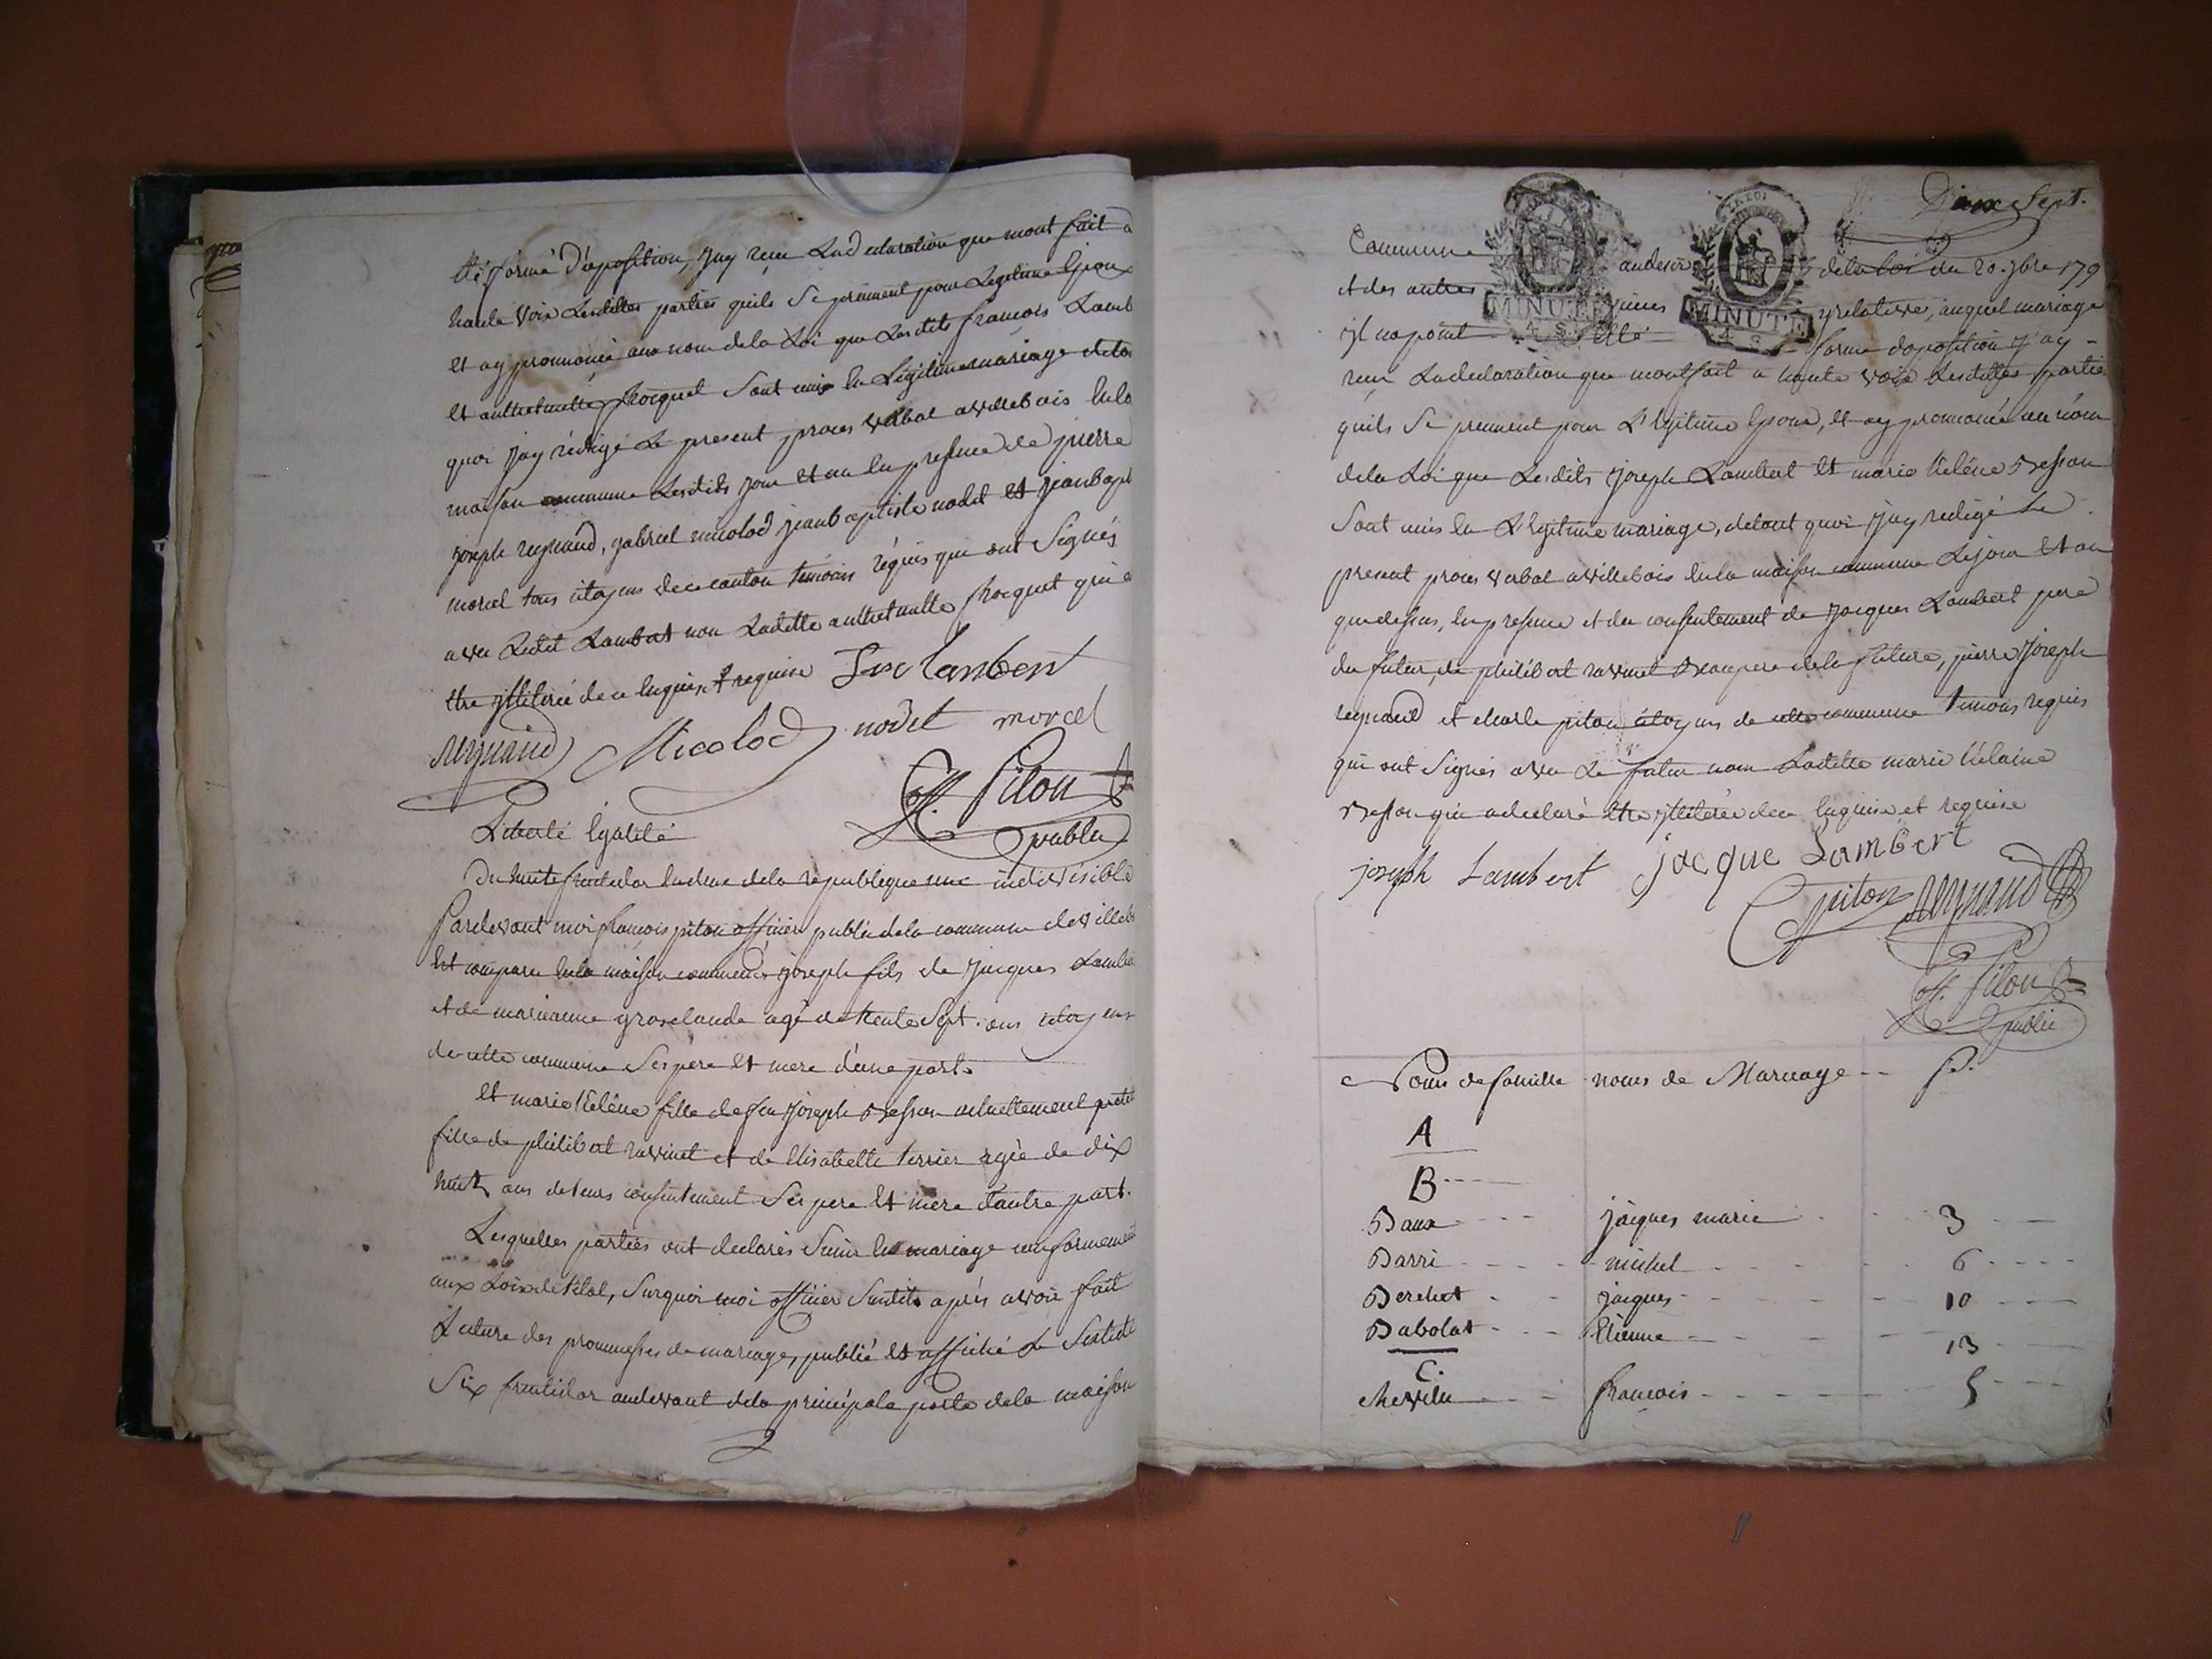 été formé d'oposition, j'ay reçu la declaration que mont fait a
haute voix lesdittes parties quils se prennent pour legitime Epoux
et ay prononcé au nom de la Loi que lesdits françois Lamb
et anthelmette procquet sont unis en Légitime mariage de to
quoi j'ay rédigé le present proces verbal a villebois en la
maison commune lesdits jour et an en presence de pierre
joseph reynaud, gabriel micolod jean baptiste nodet et jean bapt
morcel tous citoyens de ce canton temoins réquis qui ont signés
avec ledit Lambert non ladette anthelmette procquet qui a
être illiterée de ce enquise et requise Lambert
reynaud Micolod nodet morcel
ff. Piton
public
Liberté Egalité
Du huit fructidor de la république une indivisible
Pardevant moi françois piton officier public de la commune de villeb
Est comparu en la maison commune joseph fils de jacques Lambe
et de marianne groselande agé de trente sept ans citoyens
de cette commune ses pere et mere d'une part
Et marie hélêne fille de feu joseph Besson actuellement petite
fille de philibert ravinet et de Elisabette terrier agée de dix
huit ans de leurs consentement ses pere et mere d'autre part.
Lesquelles parties ont declarés s'unir en mariage conformement
aux Loix de l'état, surquoi moi officier susdit après avoir fait
Lecture des prommesses de mariage, publié et affiché le
Six fructidor audevant de la principale porte de la maison
Dixsept.
Commune au desir de la loi du 20. 7bre 179
et des autres y relative, auquel mariage
il na point été formé d'oposition j'ay
MINUTE MINUTE
reçu la declaration que mont fait a haute voix lesdittes partie
quils se prennent pour Légitime Epoux, et ay prononcé au nom
de la Loi que lesdits joseph Lambert et marie hélêne Besson
sont unis en Légitime mariage, detout quoi j'ay redigé le
present proces verbal a villebois en la maison commune le jour et an
que dessus, en presence et du consentement de jacques Lambert pere
du futur, de philibert ravinet beaupere de la future, pierre joseph
reynaud et charle piton citoyens de cette commune temoins requis
qui ont signés avec le futur non ladette marie hélaine
Besson qui a declaré être illiterée de ce enquise et requise
joseph Lambert jacque Lambert
Cpiton reynaud
ff. Piton
public
Noms de famille noms de Mariage P.
A
B
Baux jacques marie 3
Barri michel 6
Berchet jacques 10
Babolat Etienne 13
C.
Chevelu françois 5